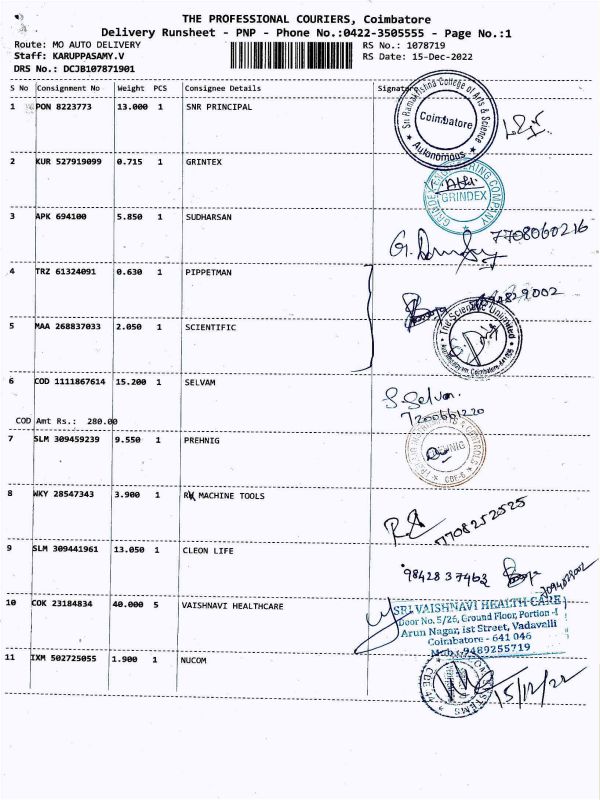 THE PROFESSIONAL COURIERS, Coimbatore
Delivery Runsheet - PNP - Phone No.:0422-3505555 - Page No.:1
Route: MO AUTO DELIVERY
RS No.: 1078719
Staff: KARUPPASAMY.V
RS Date: 15-Dec-2022
DRS No.: DCJB107871901
S No Consignment No Weight PCS Consignee Details Signature
1 PON 8223773 13.000 1 SNR PRINCIPAL
Sri Ramakrishna College of Arts & Science
Coimbatore
Autonomous
2 KUR 527919099 0.715 1 GRINTEX
GRINDEX ENGINEERING COMPANY
GRINDEX
3 APK 694100 5.850 1 SUDHARSAN
7708060216
4 TRZ 61324091 0.630 1 PIPPETMAN
5 MAA 268837033 2.050 1 SCIENTIFIC
The Scientific Unlimited
6 COD 1111867614 15.200 1 SELVAM
S. Selvam.
7200661220
COD Amt Rs.: 280.00
7 SLM 309459239 9.550 1 PREHNIG
PREHNIG
CBE-6
8 WKY 28547343 3.900 1 RK MACHINE TOOLS
7708252525
9 SLM 309441961 13.050 1 CLEON LIFE
9842837463
10 COK 23184834 40.000 5 VAISHNAVI HEALTHCARE
SRI VAISHNAVI HEALTH CARE
Door No. 5/26, Ground Floor, Portion -I
Arun Nagar, 1st Street, Vadavalli
Coimbatore - 641 046
Mob : 9489255719
11 IXM 502725055 1.900 1 NUCOM
15/12/22